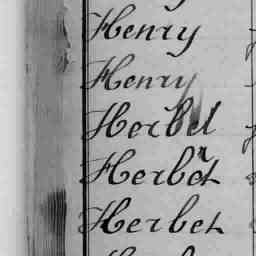 Henry
Henry
Herbel
Herbert
Herbet